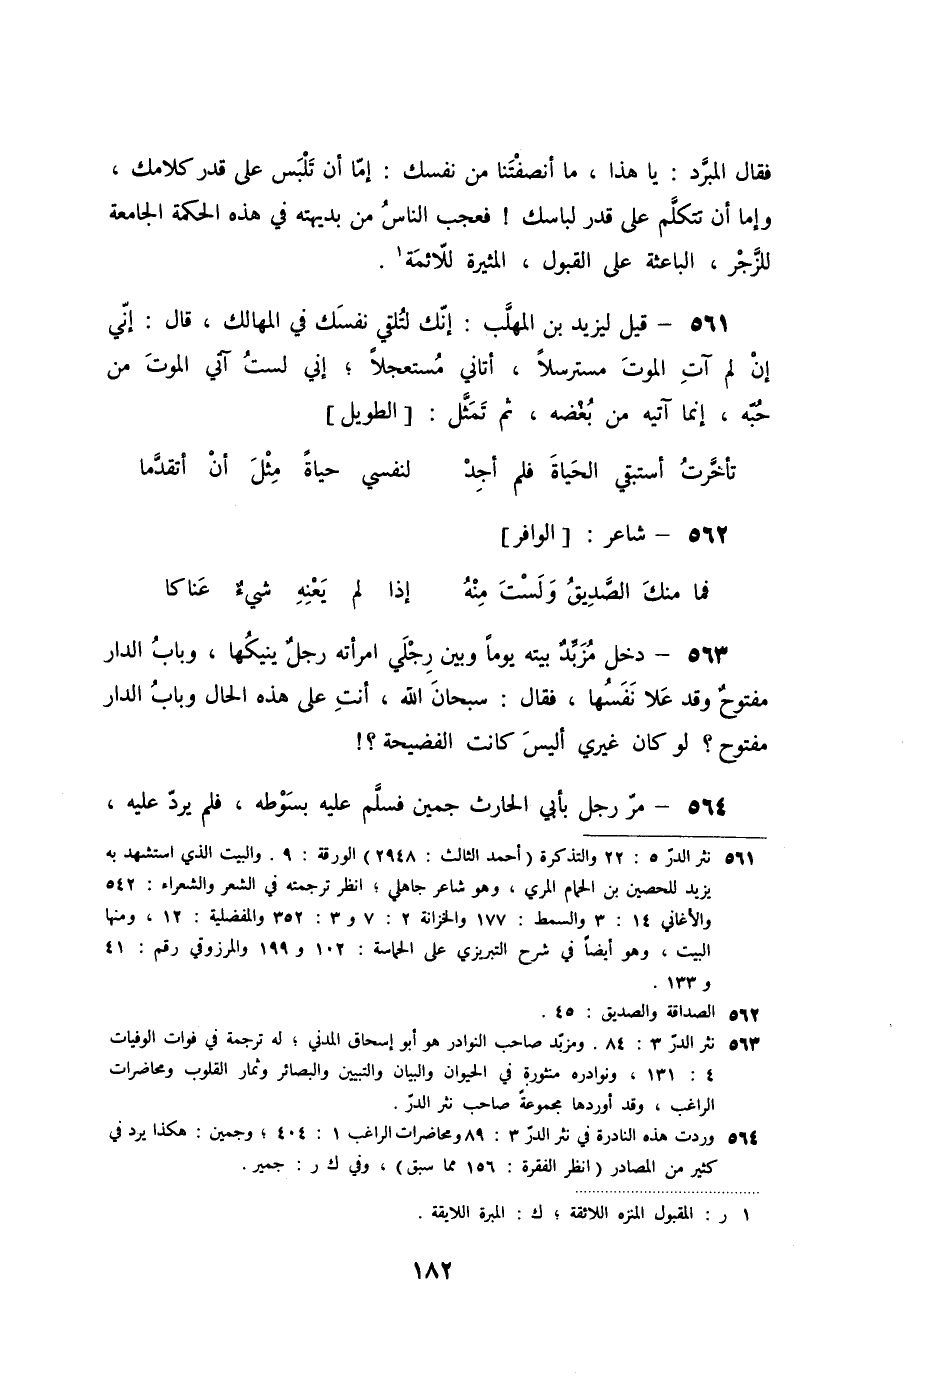 فقال المبرَّد : يا هذا ، ما أنصفْتَنا من نفسك : إمّا أن تَلْبَس على قدر كلامك ،
وإما أن تتكلَّم على قدر لباسك ! فعجب الناسُ من بديهته في هذه الحكمة الجامعة
للزَّجْر ، الباعثة على القبول ، المثيرة للّائمَة١ .
٥٦١ – قيل ليزيد بن المهلَّب : إنّك لتُلقي نفسَك في المهالك ، قال : إنّي
إنْ لم آتِ الموتَ مسترسلاً ، أتاني مُستعجلاً ؛ إني لستُ آتي الموتَ من
حُبّه ، إنما آتيه من بُغْضه ، ثم تَمَثَّل : [ الطويل ]
تأخَّرتُ أستبقي الحَياةَ فلم أجِدْ لنفسي حياةً مِثْلَ أنْ أتقدَّما
٥٦٢ – شاعر : [ الوافر ]
فما منكَ الصَّدِيقُ وَلَسْتَ مِنْهُ إذا لم يَعْنِهِ شيءٌ عَناكا
٥٦٣ – دخل مُزَبِّدٌ بيته يوماً وبين رِجْلَي امرأته رجلٌ ينيكُها ، وبابُ الدار
مفتوحٌ وقد عَلا نَفَسُها ، فقال : سبحانَ الله ، أنتِ على هذه الحال وبابُ الدار
مفتوح ؟ لو كان غيري أليسَ كانت الفضيحة ؟!
٥٦٤ – مرّ رجل بأبي الحارث جمين فسلَّم عليه بسَوْطه ، فلم يردّ عليه ،
٥٦١ نثر الدرّ ٥ : ٢٢ والتذكرة ( أحمد الثالث : ٢٩٤٨ ) الورقة : ٩ . والبيت الذي استشهد به
يزيد للحصين بن الحمام المري ، وهو شاعر جاهلي ؛ انظر ترجمته في الشعر والشعراء : ٥٤٢
والأغاني ١٤ : ٣ والسمط : ١٧٧ والخزانة ٢ : ٧ و ٣ : ٣٥٢ والمفضلية : ١٢ ، ومنها
البيت ، وهو أيضاً في شرح التبريزي على الحماسة : ١٠٢ و ١٩٩ والمرزوقي رقم : ٤١
و ١٣٣ .
٥٦٢ الصداقة والصديق : ٤٥ .
٥٦٣ نثر الدرّ ٣ : ٨٤ . ومزبّد صاحب النوادر هو أبو إسحاق المدني ؛ له ترجمة في فوات الوفيات
٤ : ١٣١ ، ونوادره منثورة في الحيوان والبيان والتبيين والبصائر وثمار القلوب ومحاضرات
الراغب ، وقد أوردها مجموعةً صاحب نثر الدرّ .
٥٦٤ وردت هذه النادرة في نثر الدرّ ٣ : ٨٩ ومحاضرات الراغب ١ : ٤٠٤ ؛ وجمين : هكذا يرد في
كثير من المصادر ( انظر الفقرة : ١٥٦ مما سبق ) ، وفي ك ر : جمير .
١ ر : المقبول المنزه اللائقة ؛ ك : المبرة اللايقة .
١٨٢